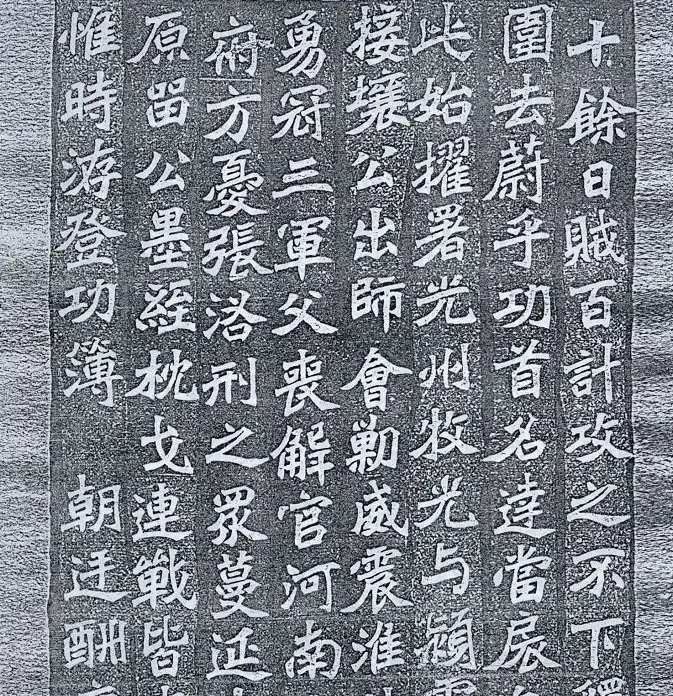 十餘日賊百計攻之不下
圍去蔚乎功首名達當扆
此始擢署光州牧光与潁
接壤公出師會勦威震淮
勇冠三軍父喪解官河南
府方憂張洛刑之眾蔓延
原留公墨絰枕戈連戰皆
惟時洊登功簿 朝廷酬